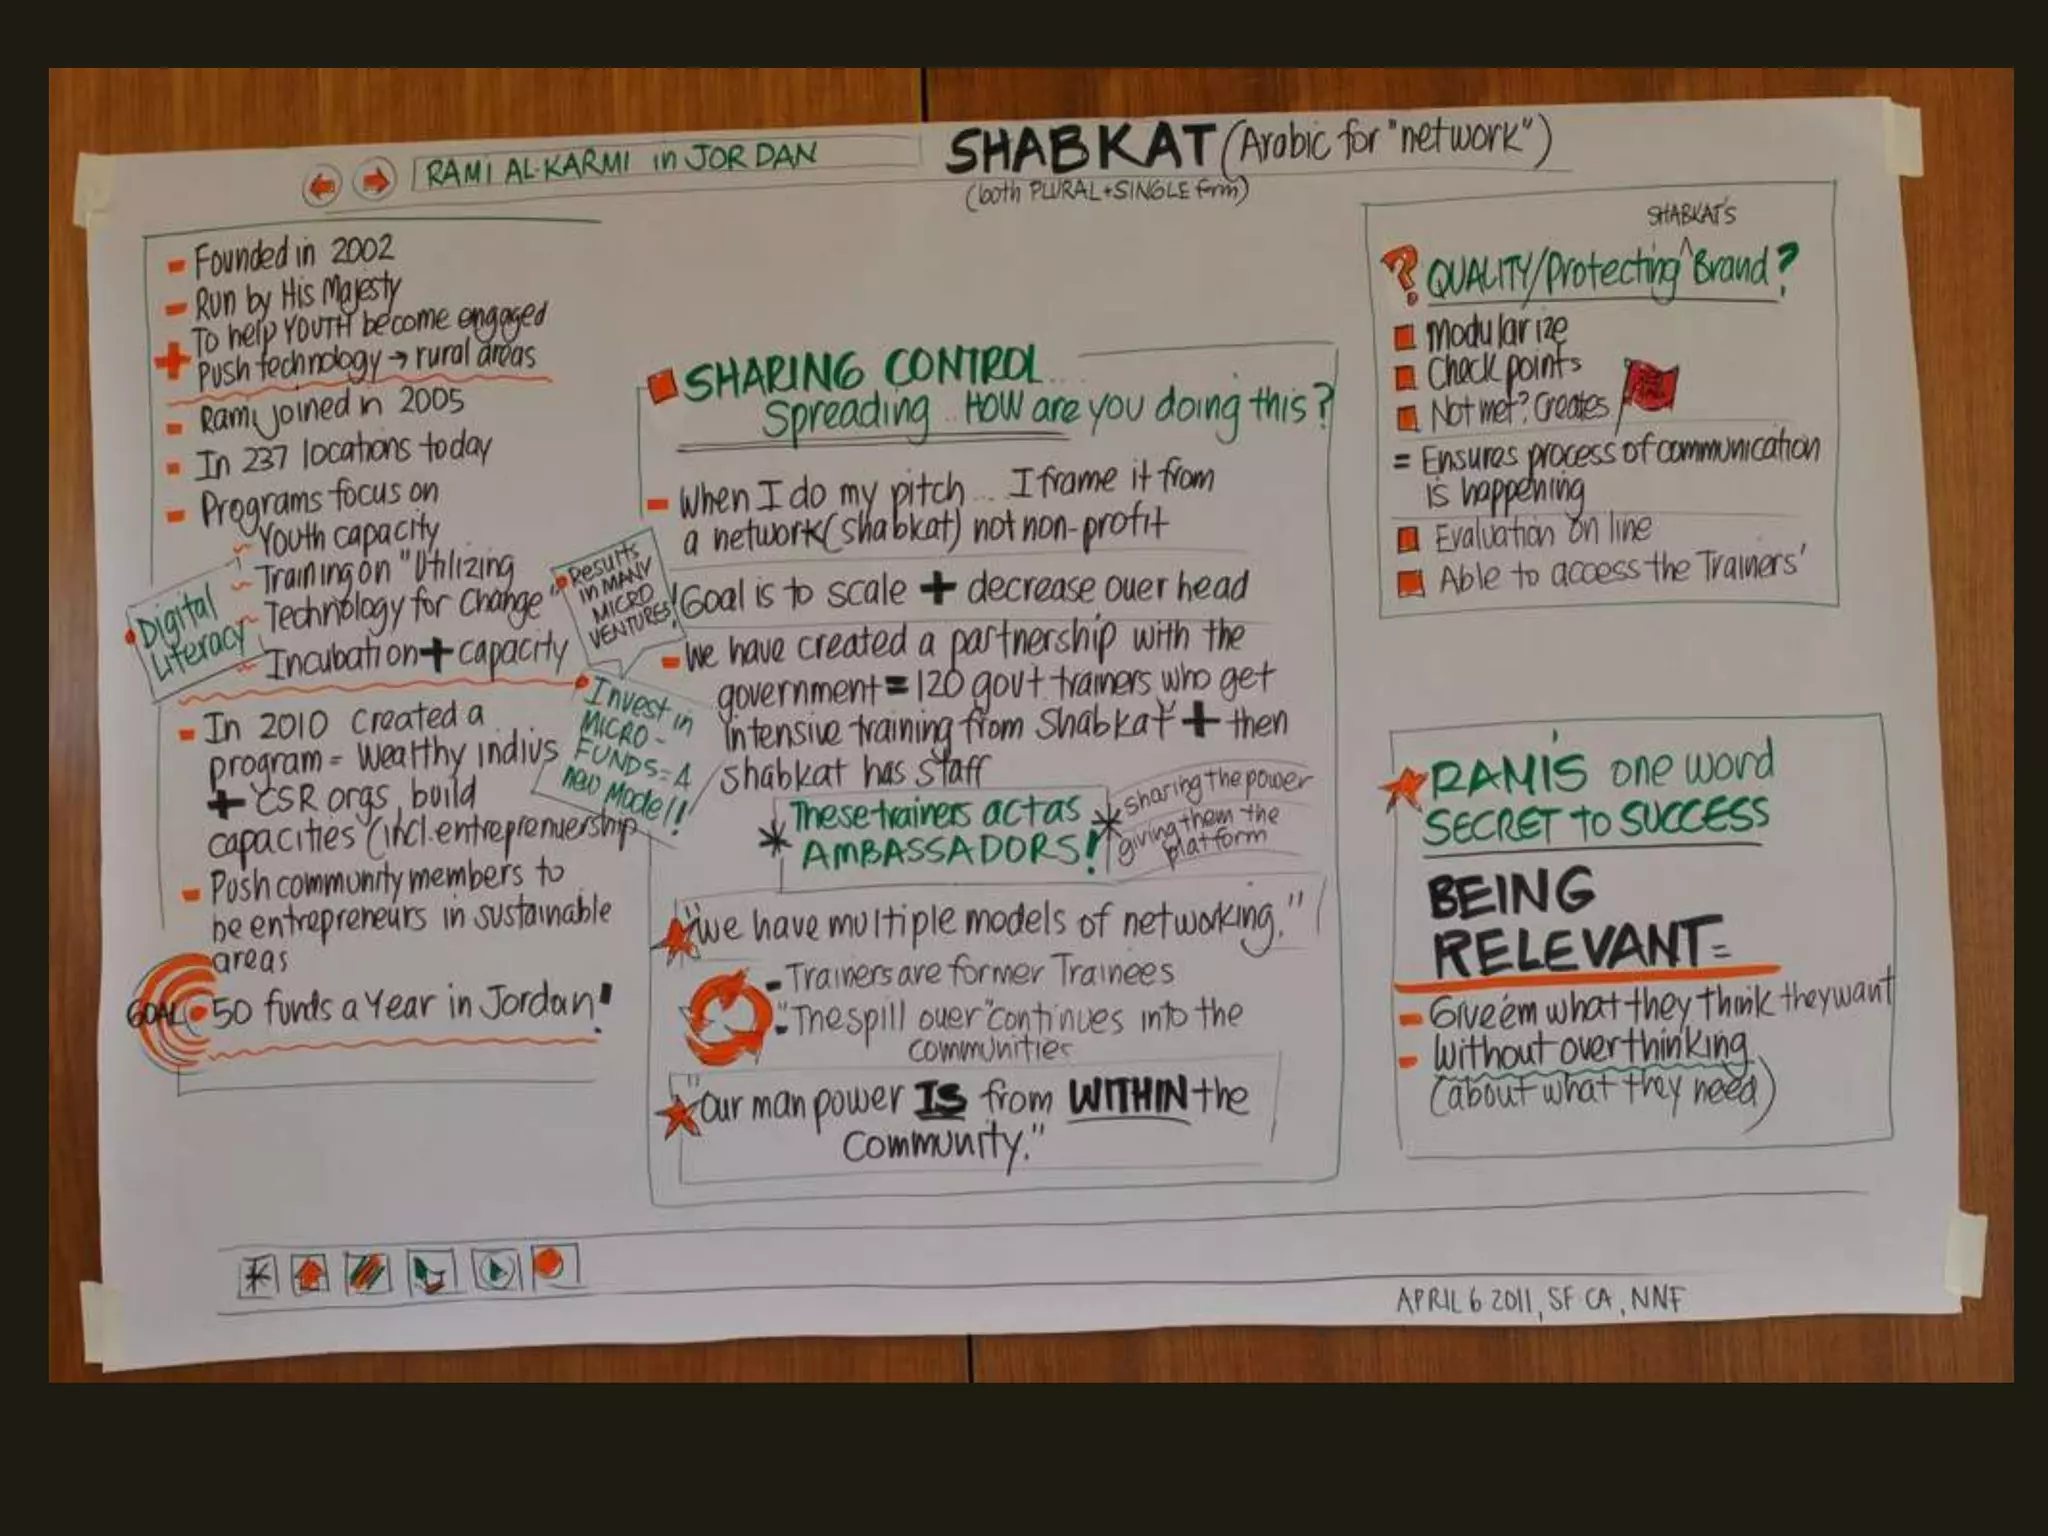 RAMI AL-KARMI in JORDAN
SHABKAT (Arabic for "network")
(both PLURAL + SINGLE form)
- Founded in 2002
- Run by His Majesty
To help YOUTH become engaged
+ Push technology → rural areas
- Rami joined in 2005
- In 237 locations today
- Programs focus on
Youth capacity
~ Training on "Utilizing
~ Technology for Change"
~ Incubation + capacity
Digital
Literacy
Results
in MANY
MICRO
VENTURES!
Invest in
MICRO-
FUNDS = A
new Model!
- In 2010 created a
program = Wealthy indivs
+ CSR orgs, build
capacities (incl. entreprenuership
- Push community members to
be entrepreneurs in sustainable
areas
GOAL 50 funds a Year in Jordan!
SHARING CONTROL...
Spreading.. HOW are you doing this?
- When I do my pitch... I frame it from
a network (shabkat) not non-profit
Goal is to scale + decrease over head
- We have created a partnership with the
government = 120 govt trainers who get
intensive training from Shabkat + then
shabkat has staff
* These trainers act as
AMBASSADORS!
* sharing the power
giving them the
platform
"We have multiple models of networking."
- Trainers are former Trainees
- "The spill over" continues into the
communities
"Our man power IS from WITHIN the
Community."
SHABKAT'S
? QUALITY/Protecting ^ Brand?
Modularize
Check points
Not met? Creates
= Ensures process of communication
is happening
Evaluation on line
Able to access the Trainers'
RAMI'S one word
SECRET to SUCCESS
BEING
RELEVANT =
- Give em what they think they want
- Without overthinking
(about what they need)
APRIL 6 2011, SF CA, NNF